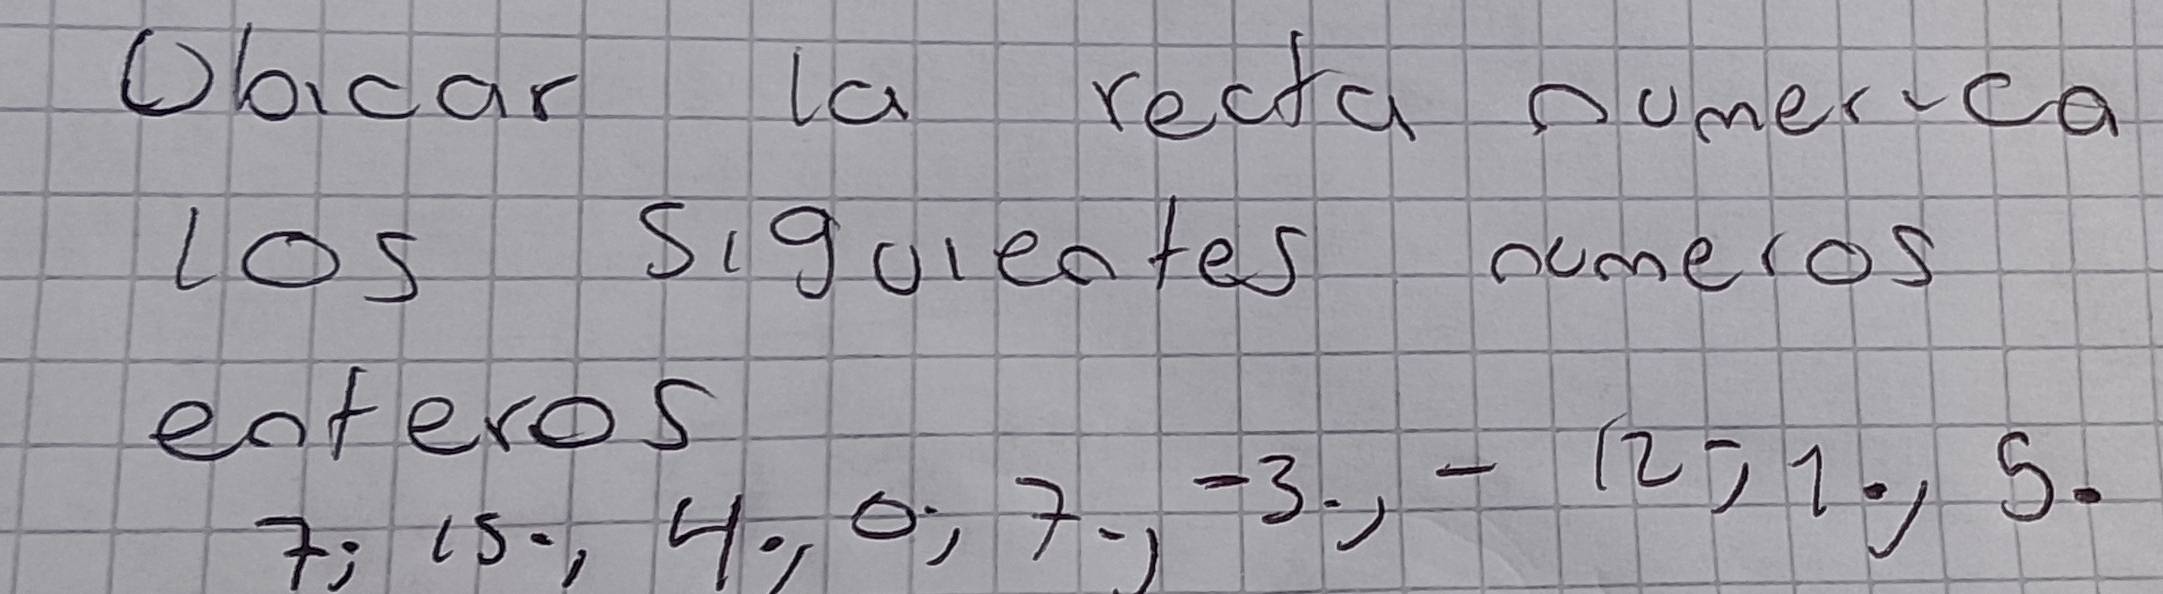 Ubicar la recta numerica
los siguientes numeros
enteros
7; 15; 4; 0; 7; -3; - 12; 1; 5.